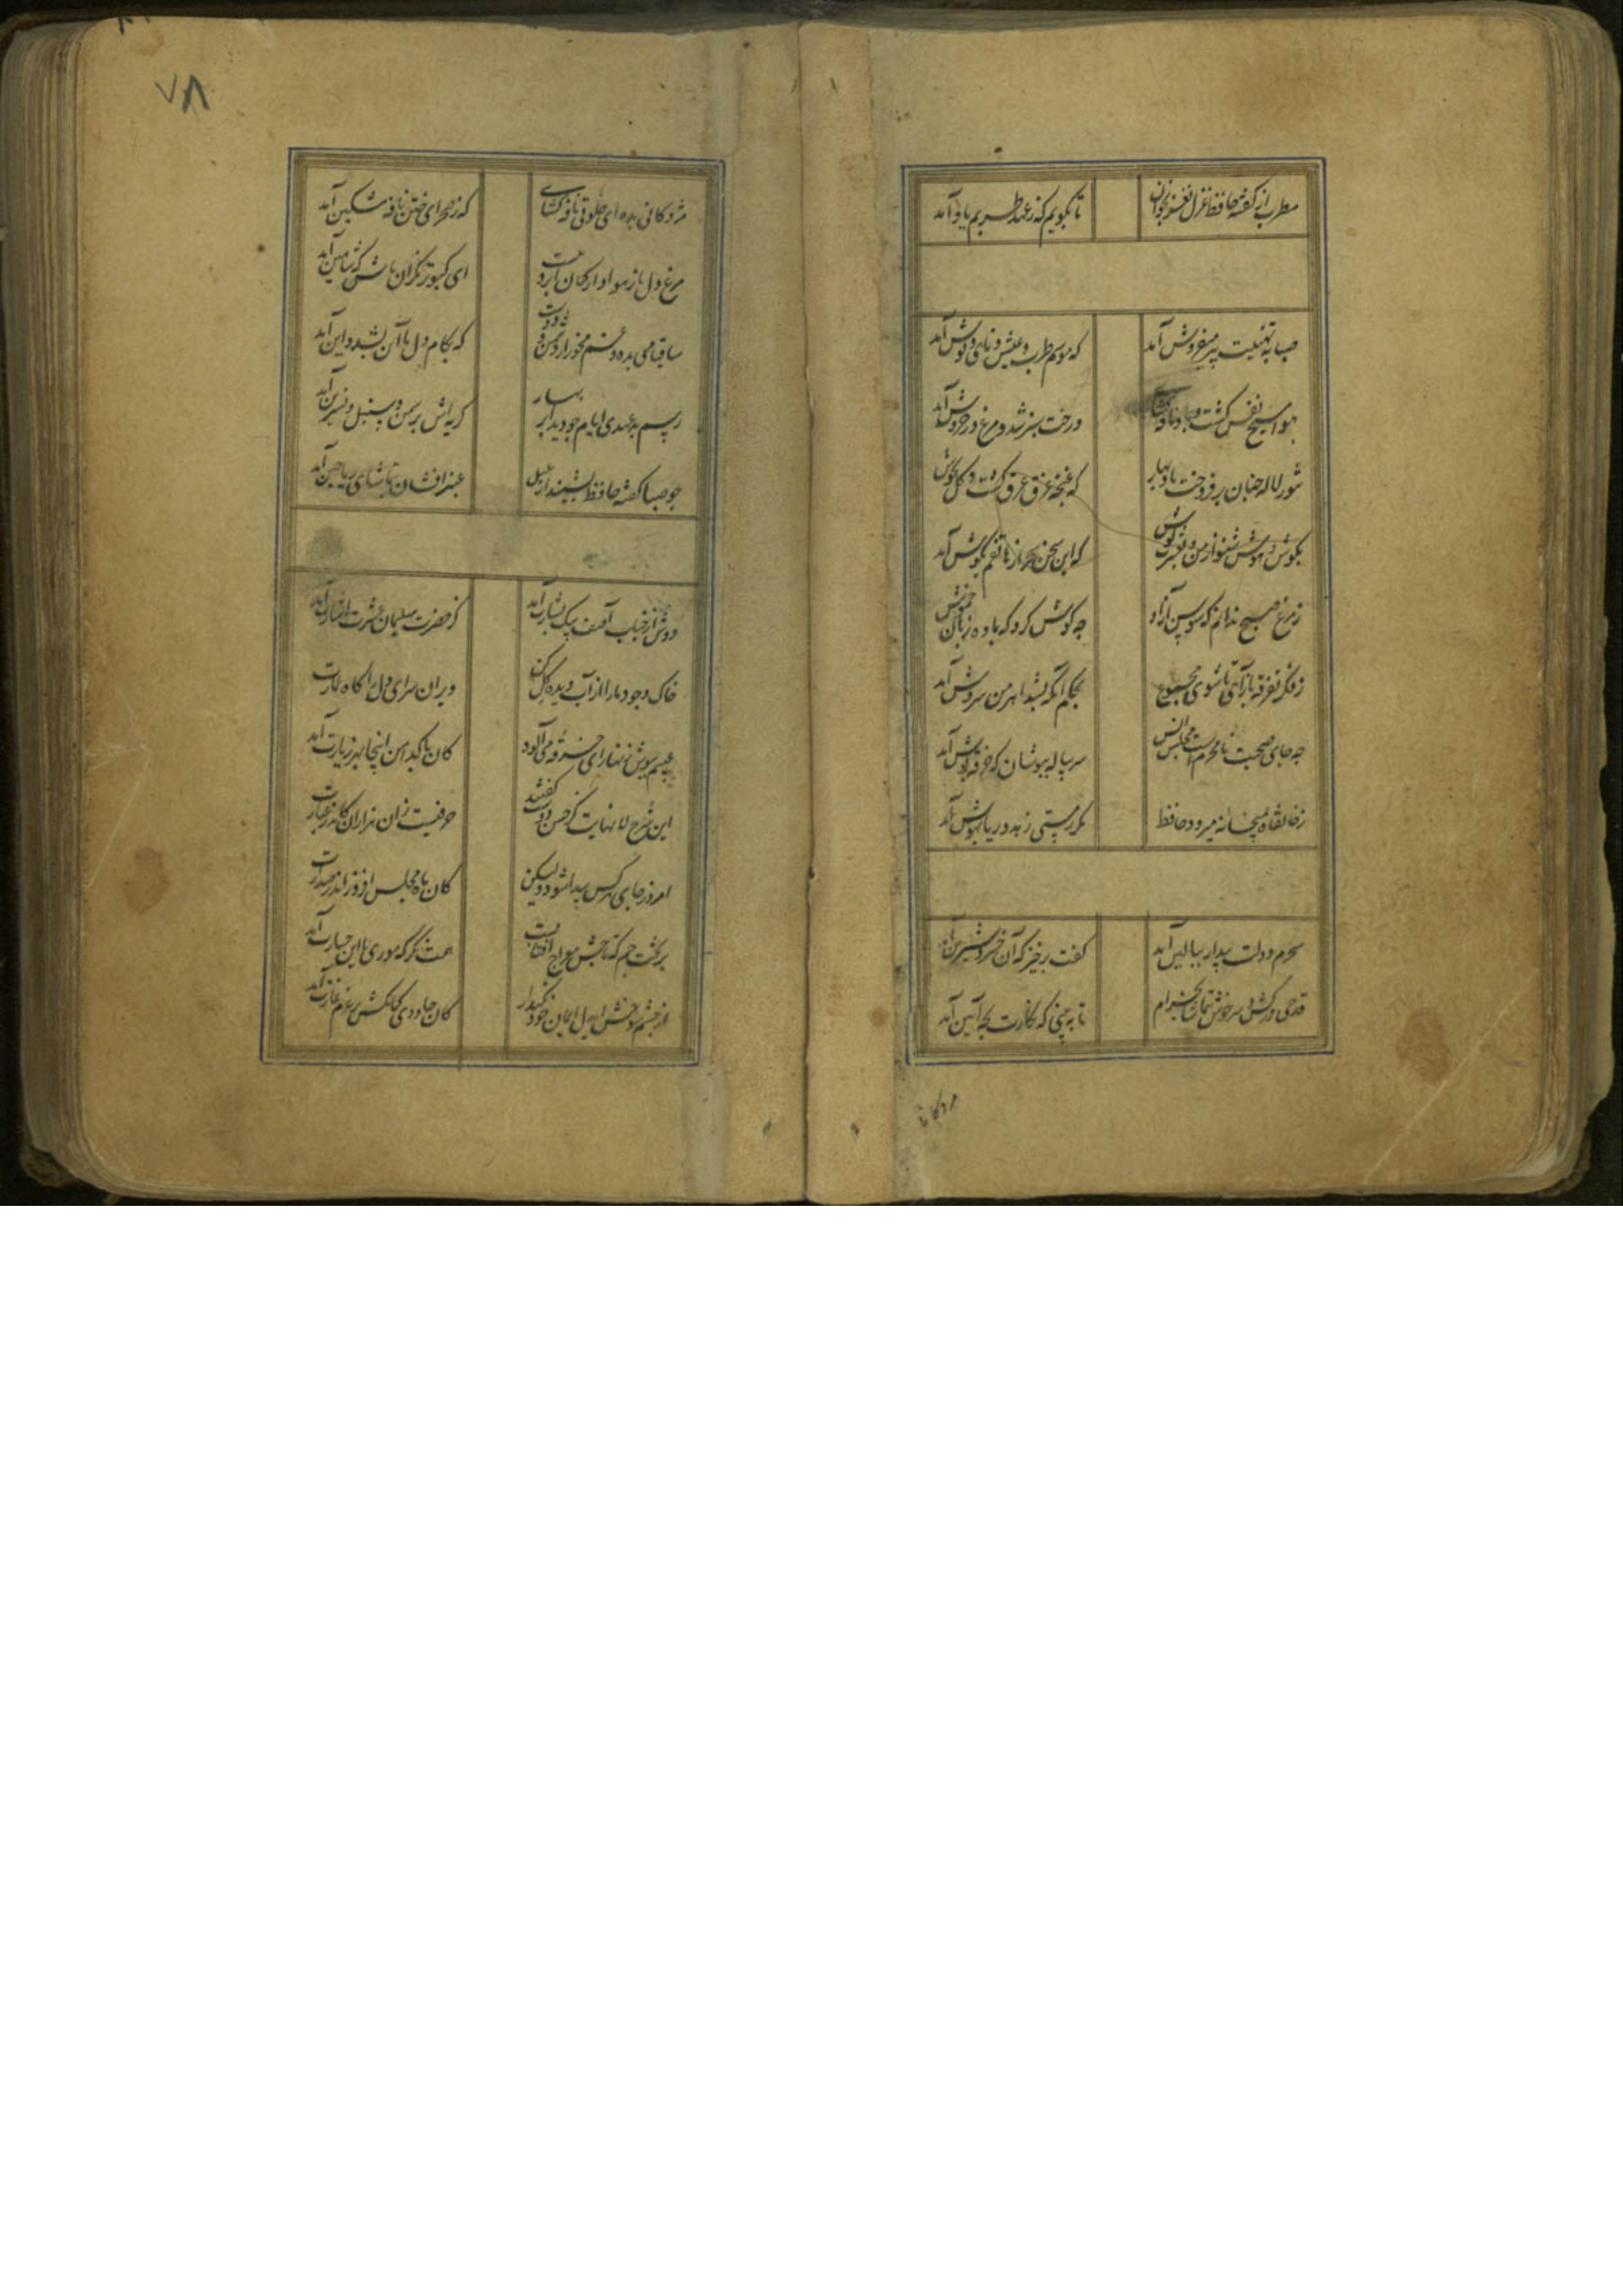 مطرب از گفته حافظ غزل نغز بخوان
تا بگویم که ز عهد طربم یاد آمد
صبا به تهنیت پیر میفروش آمد
که موسم طرب و عیش و نای و نوش آمد
هوا مسیح نفس گشت و باد نافه گشای
درخت سبز شد و مرغ در خروش آمد
تنور لاله چنان بر فروخت باد بهار
که غنچه غرق عرق گشت و گل بجوش
بگوش هوش نیوش از من و بعشرت کوش
که این سخن سحر از هاتفم بگوش آمد
ز مرغ صبح ندانم که سوسن آزاد
چه گوش کرد که با ده زبان خموش
ز فکر تفرقه باز آی تا شوی مجموع
بحکم آنکه بشد اهرمن سروش آمد
چه جای صحبت نامحرمست مجلس انس
سر پیاله بپوشان که خرقه پوش آمد
ز خانقاه بمیخانه میرود حافظ
مگر ز مستی زهد و ریا بهوش آمد
سحرم دولت بیدار ببالین آمد
گفت برخیز که آن خسرو شیرین آمد
قدحی درکش و سرخوش بتماشا بخرام
تا به بینی که نگارت بچه آیین آمد
مژدگانی
۷۸
مژدگانی بده ای خلوتی نافه گشای
که ز صحرای ختن نافه مشکین آمد
مرغ دل باز هوادار کمان ابروئیست
ای کبوتر نگران باش که شاهین آمد
ساقیا می بده و غم مخور از دشمن و دوست
که بکام دل ما آن بشد و این آمد
رسم بد عهدی ایام چو دید ابر بهار
گریه اش بر سمن و سنبل و نسرین آمد
چو صبا گفته حافظ بشنید از بلبل
عنبر افشان بتماشای ریاحین آمد
دوش از جناب آصف پیک بشارت آمد
کز حضرت سلیمان عشرت اشارت آمد
خاک وجود ما را از آب دیده گل کن
ویران سرای دل را گاه عمارت
عیبم بپوش زنهار ای خرقه می آلود
کان پاکدامن اینجا بهر زیارت آمد
این شرح لا نهایت کز حسن دوست گفتند
حرفیست زان هزاران کاندر عبارت
امروز جای هر کس پیدا شود ولیکن
کان ماه مجلس افروز اندر صدارت
بر تخت جم که تاجش معراج آفتابست
همت نگر که موری با این حقارت آمد
از چشم شوخش ایدل ایمان خود نگهدار
کان جادوی کمانکش بر عزم غارت آمد